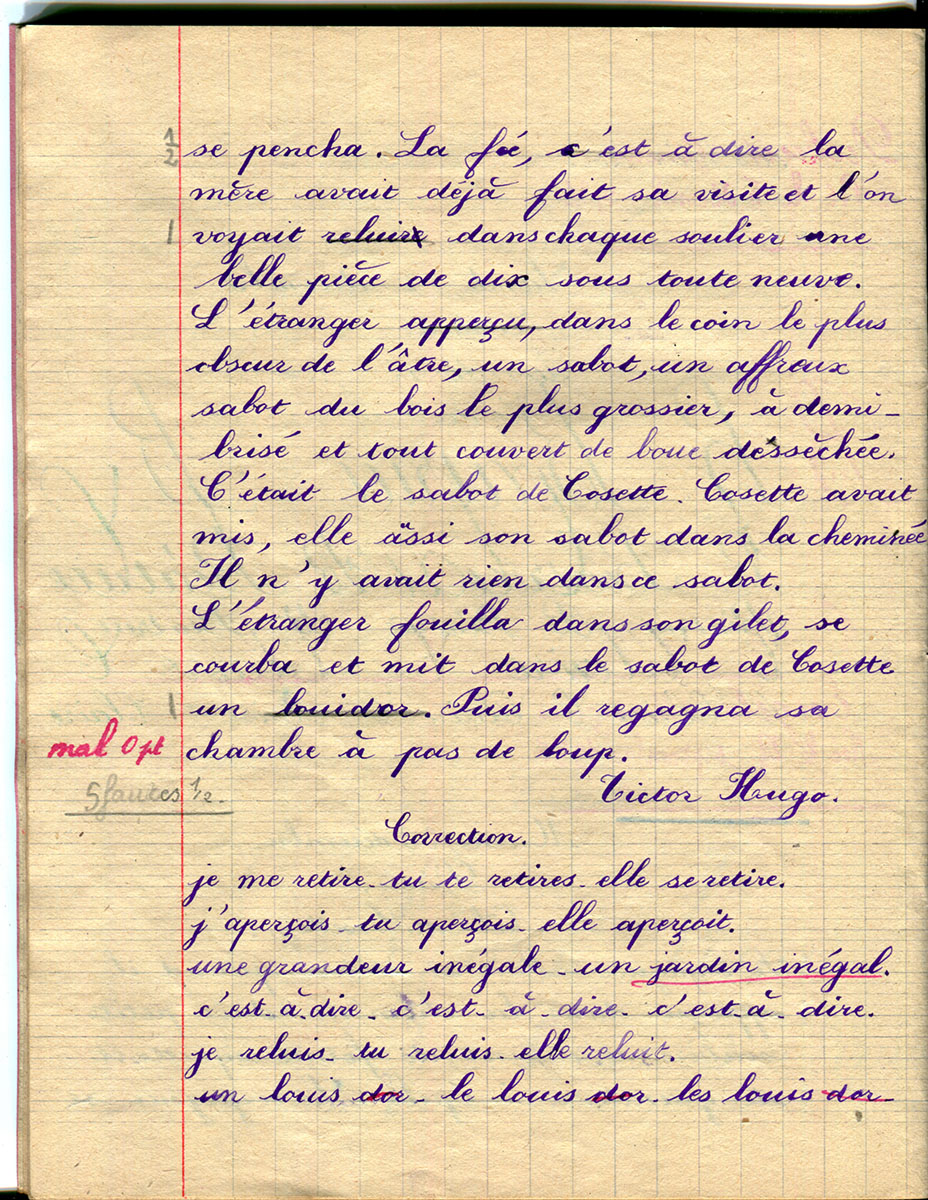 1/2 se pencha. La fée, c'est à dire la
mère avait déjà fait sa visite et l'on
1 voyait reluire dans chaque soulier une
belle pièce de dix sous toute neuve.
L'étranger apperçu, dans le coin le plus
obscur de l'âtre, un sabot, un affreux
sabot du bois le plus grossier, à demi-
brisé et tout couvert de boue dessèchée.
C'était le sabot de Cosette. Cosette avait
mis, elle äissi son sabot dans la cheminée
Il n'y avait rien dans ce sabot.
L'étranger fouilla dans son gilet, se
courba et mit dans le sabot de Cosette
1 un louidor. Puis il regagna sa
mal 0 pt chambre à pas de loup.
5 fautes 1/2. Victor Hugo.
Correction.
je me retire - tu te retires - elle se retire.
j'aperçois - tu aperçois - elle aperçoit.
une grandeur inégale - un jardin inégal.
c'est-à-dire - c'est-à-dire - c'est-à-dire.
je reluis - tu reluis - elle reluit.
un louis dor - le louis dor - les louis dor -